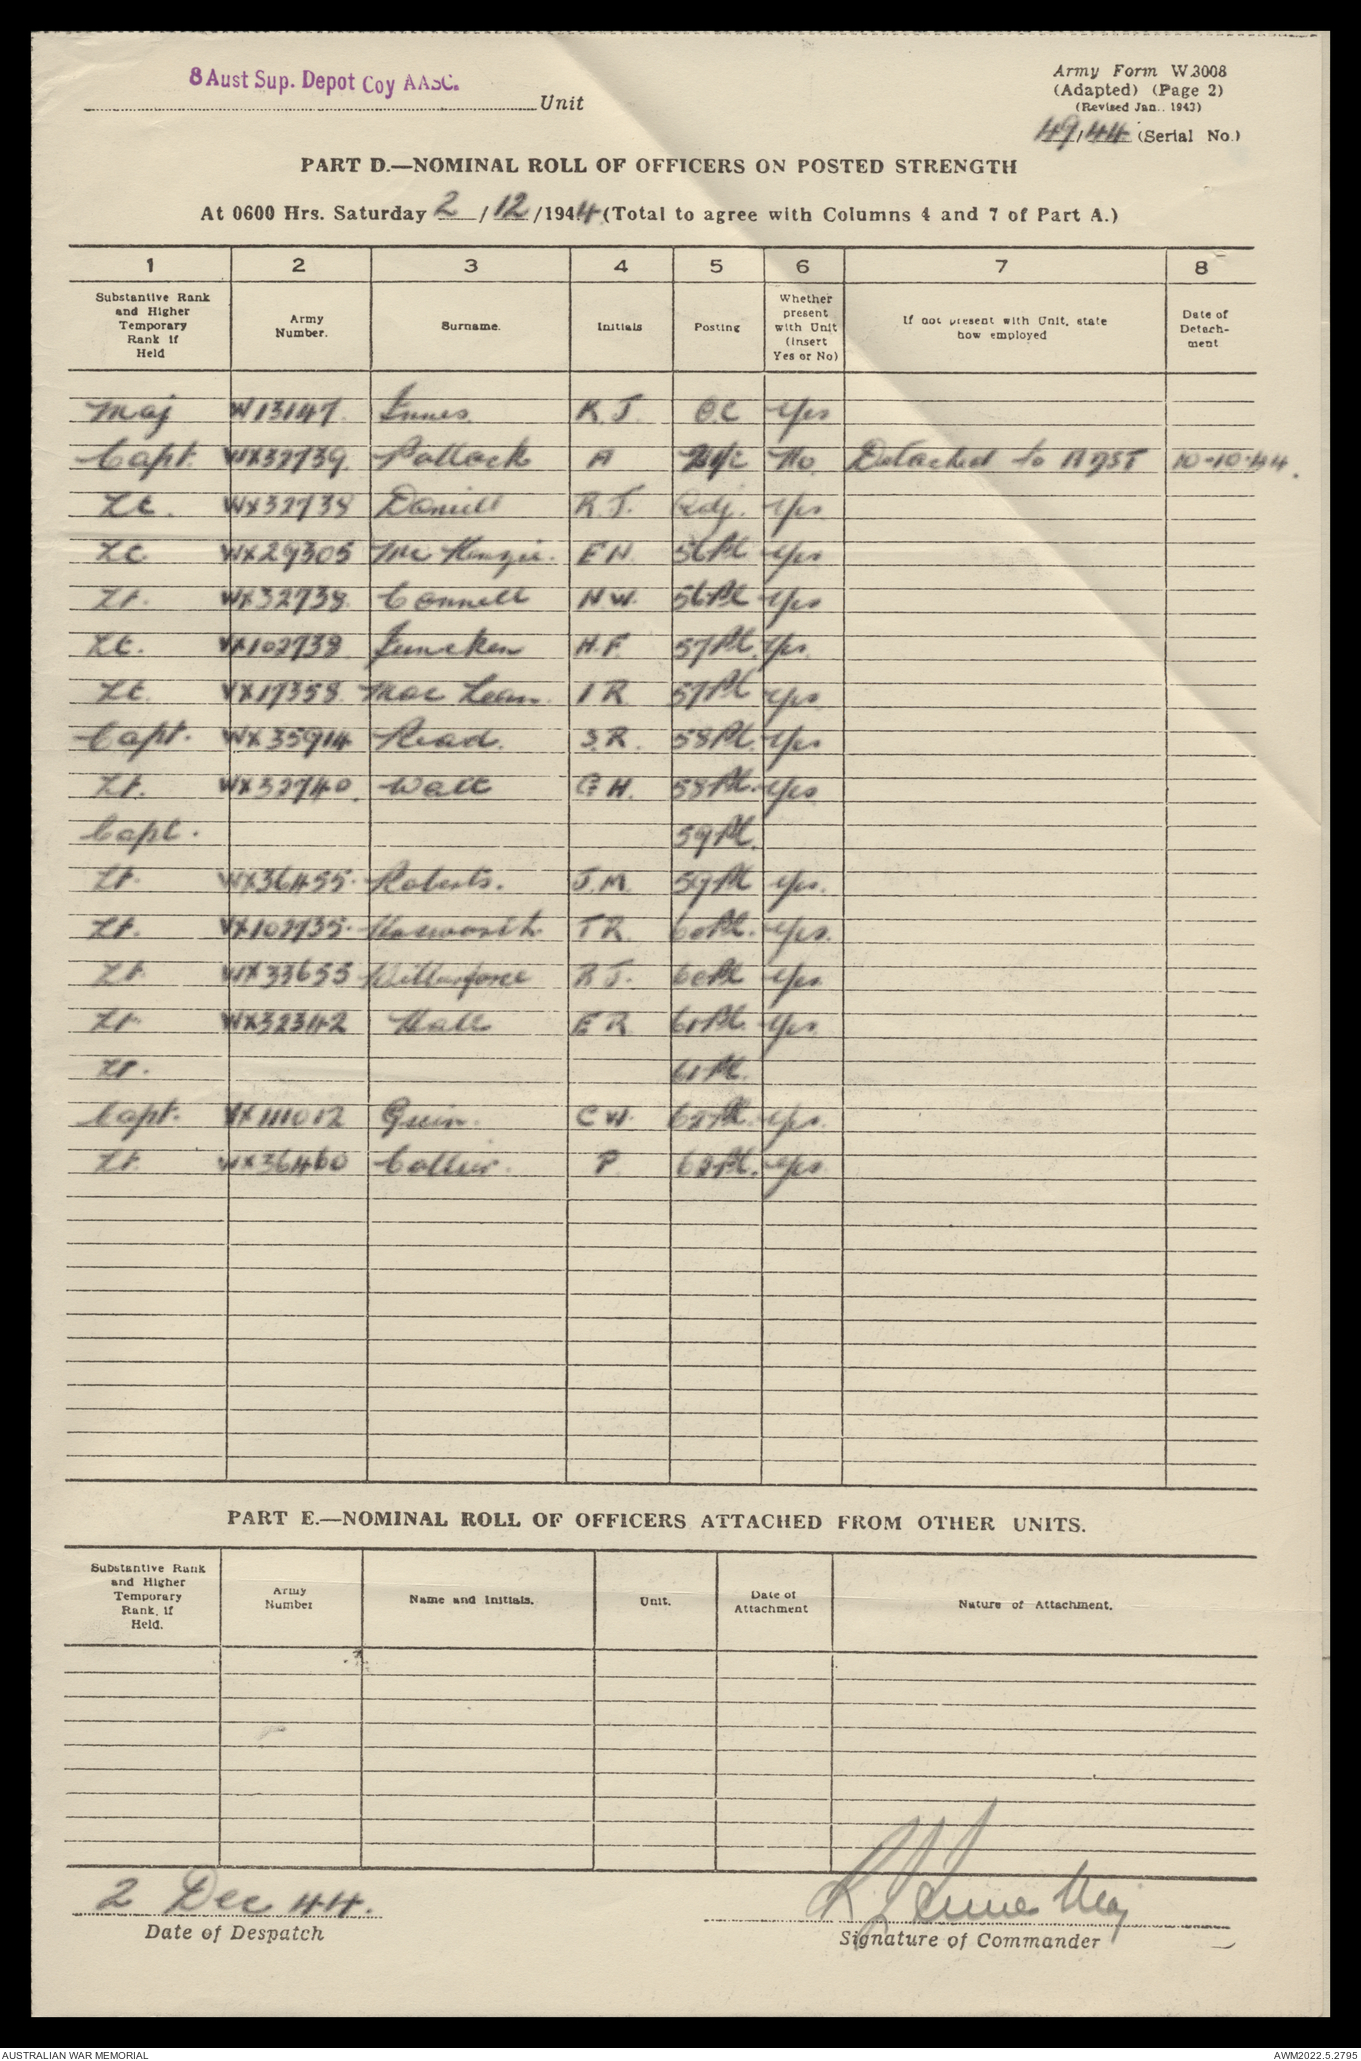 8 Aust Sup. Depot Coy AASC.
Unit
Army Form W.3008
(Adapted) (Page 2)
(Revised Jan., 1943)
49/44 (Serial No.)
PART D.—NOMINAL ROLL OF OFFICERS ON POSTED STRENGTH
At 0600 Hrs. Saturday 2/12/1944 (Total to agree with Columns 4 and 7 of Part A.)
1 2 3 4 5 6 7 8
Substantive Rank and Higher Temporary Rank if Held
Army Number.
Surname.
Initials
Posting
Whether present with Unit (Insert Yes or No)
If not present with Unit, state how employed
Date of Detachment
Maj W13147 Innes K.J. O.C Yes
Capt. WX32739 Pollock A 2i/c No Detached to 10-10-44.
Lt. WX32738 Daniell R.J. Adj. Yes
Lt WX29305 McKenzie. E N. 56 Pl Yes
Lt. WX32738 Connell N.W. 56 Pl Yes
Lt. VX102738 Juncken H.F. 57 Pl. Yes.
Lt. VX17358 MacLean I R 57 Pl Yes
Capt. WX35914 Read. S.R. 58 Pl. Yes
Lt. WX32740. Watt G H. 58 Pl. Yes
Capt. 59 Pl.
Lt. WX36455. Roberts. J.M. 59 Pl Yes.
Lt. VX102735. T R. 60 Pl. Yes.
Lt. WX33655 R J. 60 Pl Yes
Lt. WX32342 Hall E R 61 Pl. Yes
Lt. 61 Pl.
Capt. VX111012 C W. 62 Pl. Yes.
Lt. WX36460 Collier. P. 62 Pl. Yes
PART E.—NOMINAL ROLL OF OFFICERS ATTACHED FROM OTHER UNITS.
Substantive Rank and Higher Temporary Rank, if Held.
Army Number
Name and Initials.
Unit.
Date of Attachment
Nature of Attachment.
2 Dec 44.
Date of Despatch
K J Innes Maj
Signature of Commander
AUSTRALIAN WAR MEMORIAL
AWM2022.5.2795